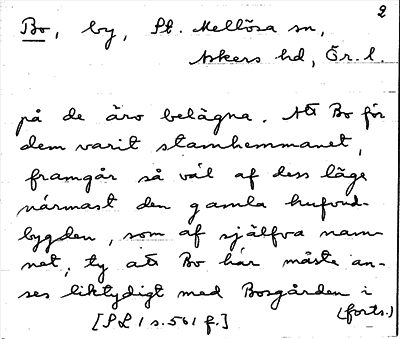 2
Bo, by, St. Mellösa sn,
Askers hd, Ör. l.
på de äro belägna. Att Bo för
dem varit stamhemmanet,
framgår så väl af dess läge
närmast den gamla hufvud-
bygden, som af själfva nam-
net, ty att Bo här måste an-
ses liktydigt med Bosgården i
(forts.)
[SL 1 s. 561 f.]